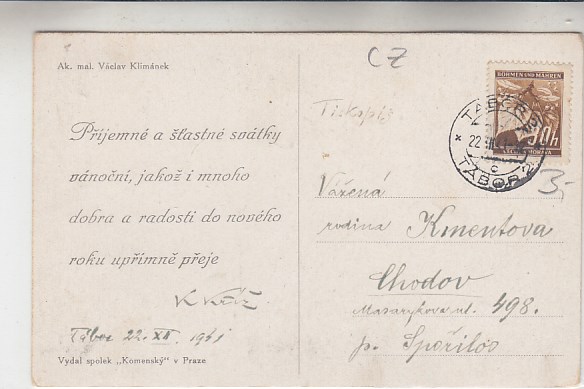 Ak. mal. Václav Klimánek
Příjemné a šťastné svátky
vánoční, jakož i mnoho
dobra a radosti do nového
roku upřímně přeje
K Kříž
Tábor 22. XII. 1941
Vydal spolek „Komenský" v Praze
CZ
BÖHMEN UND MÄHREN
30 h
ČECHY A MORAVA
TÁBOR 2
22. XII.
c
TÁBOR 2
Tiskopis
3,-
Vážená
rodina Kmentova
Chodov
Masarykova ul. 498.
p. Spořilov